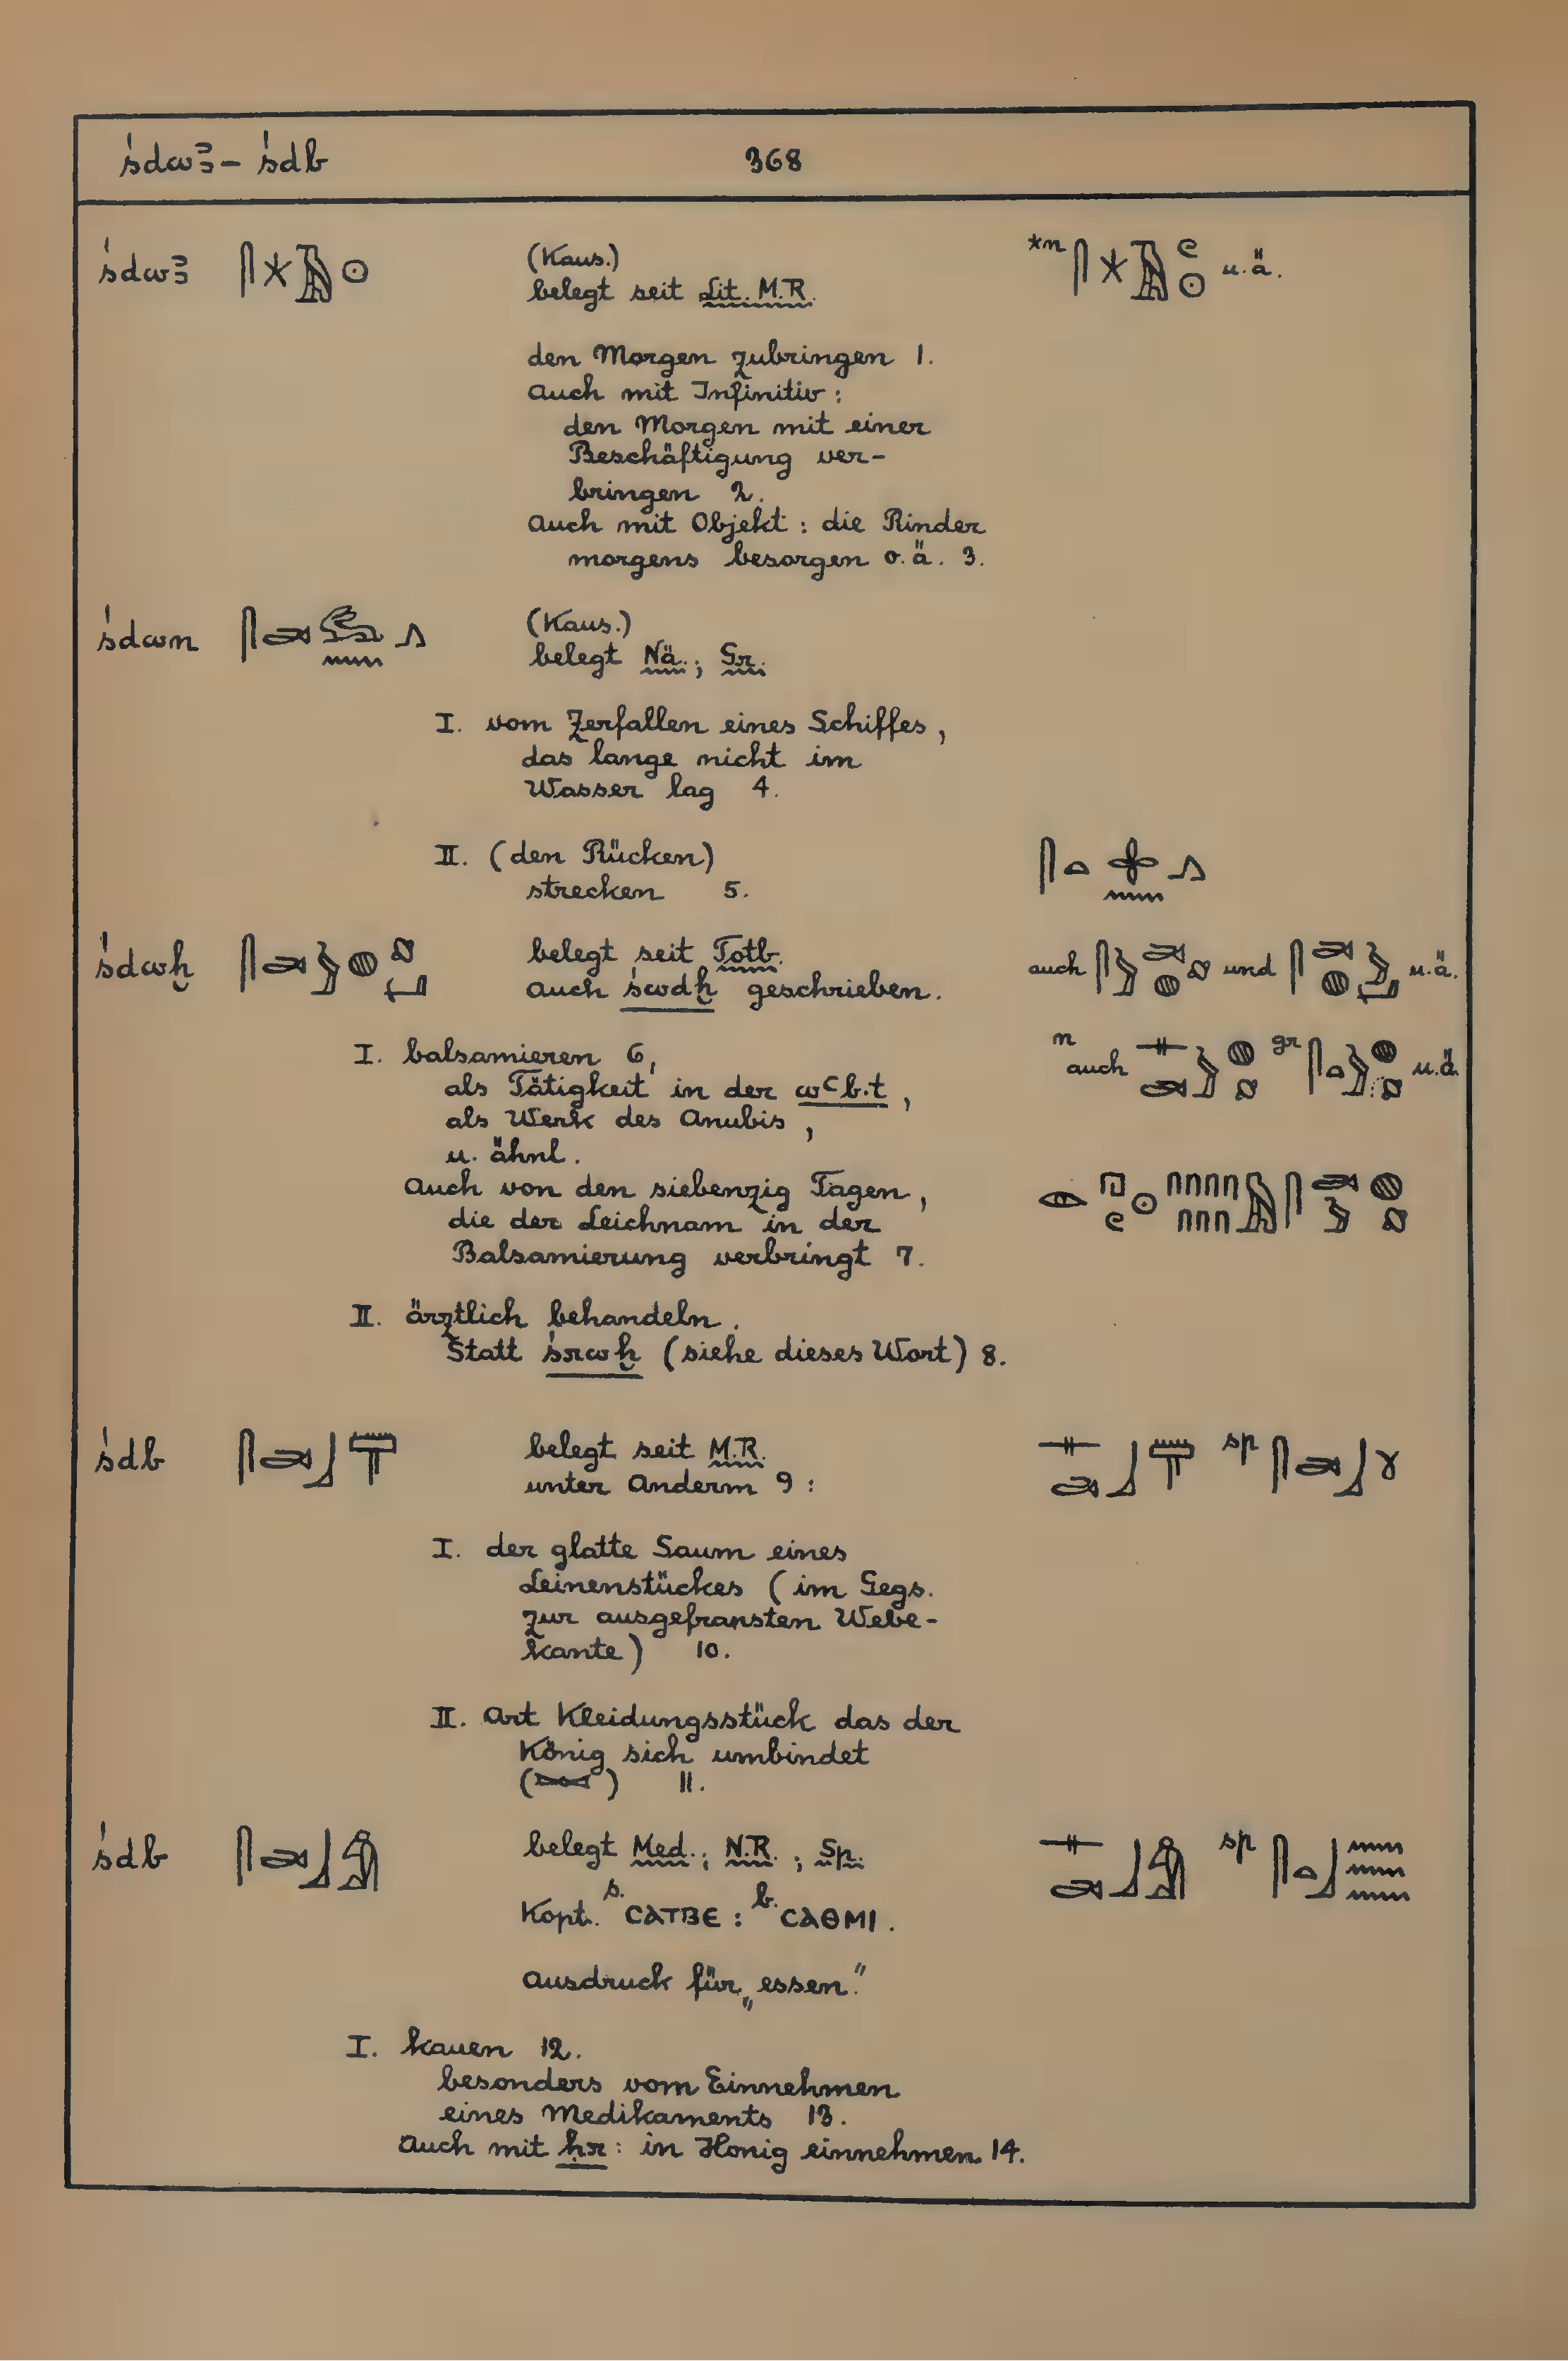 śdwꜣ – śdb 368
śdwꜣ 𓋴𓇼𓄿𓇳 (Kaus.) *n 𓋴𓇼𓄿𓏲𓇳 u.ä.
belegt seit Lit. M.R.
den Morgen zubringen 1.
Auch mit Infinitiv:
den Morgen mit einer
Beschäftigung ver-
bringen 2.
Auch mit Objekt: die Rinder
morgens besorgen o.ä. 3.
śdwn 𓋴𓂧𓃹𓈖𓂻 (Kaus.)
belegt Nä.; Gr.
I. vom Zerfallen eines Schiffes,
das lange nicht im
Wasser lag 4.
II. (den Rücken) 𓋴𓏏𓇬𓈖𓂻
strecken 5.
śdwḫ belegt seit Totb. auch und u.ä.
auch śwdḫ geschrieben.
I. balsamieren 6, n auch gr u.ä.
als Tätigkeit in der wꜥb.t,
als Werk des Anubis,
u. ähnl.
Auch von den siebenzig Tagen,
die der Leichnam in der
Balsamierung verbringt 7.
II. ärztlich behandeln.
Statt śrwḫ (siehe dieses Wort) 8.
śdb 𓋴𓂧𓃀 belegt seit M.R. 𓊃𓂧𓃀 sp 𓋴𓂧𓃀
unter Anderm 9:
I. der glatte Saum eines
Leinenstückes (im Gegs.
zur ausgefransten Webe-
kante) 10.
II. Art Kleidungsstück das der
König sich umbindet
( ) 11.
śdb 𓋴𓂧𓃀𓀁 belegt Med.; N.R.; Sp. 𓊃𓂧𓃀𓀁 sp 𓋴𓏏𓃀𓈗
Kopt. s. ⲤⲀⲦⲂⲈ : b. ⲤⲀⲐⲘⲒ.
Ausdruck für „essen."
I. kauen 12.
besonders vom Einnehmen
eines Medikaments 13.
Auch mit ḥr: in Honig einnehmen 14.